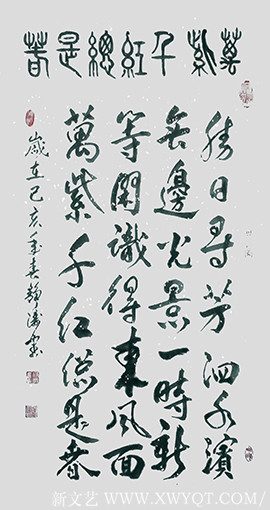 萬紫千紅總是春
勝日尋芳泗水濱
無邊光景一時新
等閑識得東風面
萬紫千紅總是春
歲在己亥年春靜濤書
新文艺/WWW.XWYQT.COM/